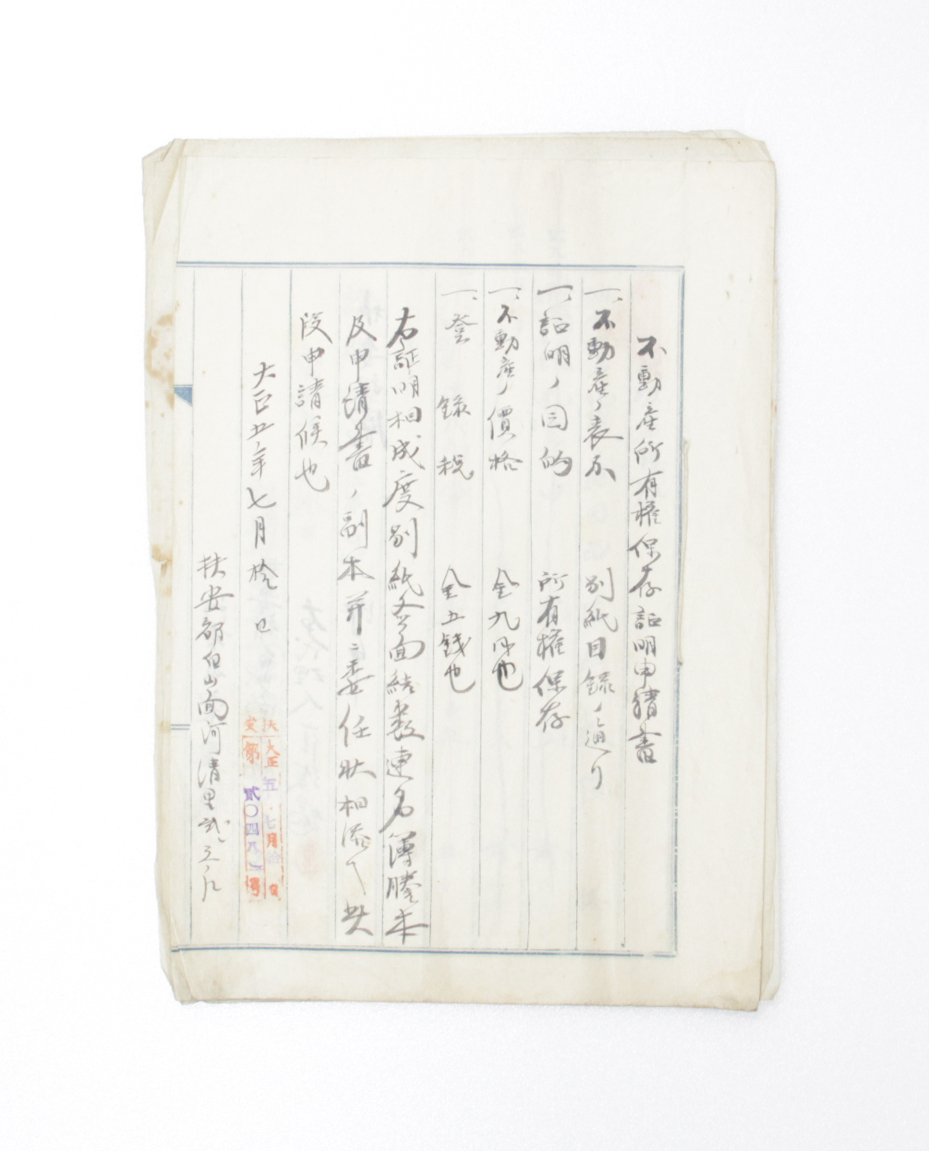 不動産所有権保存証明申請書
一、不動産ノ表示 別紙目録ノ通リ
一、証明ノ目的 所有権保存
一、不動産ノ價格 金九円也
一、登録税 金五銭也
右証明相成度別紙各面結数連名簿謄本
及申請書ノ副本并ニ委任状相添ヘ此
段申請候也
大正五年七月拾 日
扶安郡白山面河清里
大正五.七月 日
第貳〇四八 號